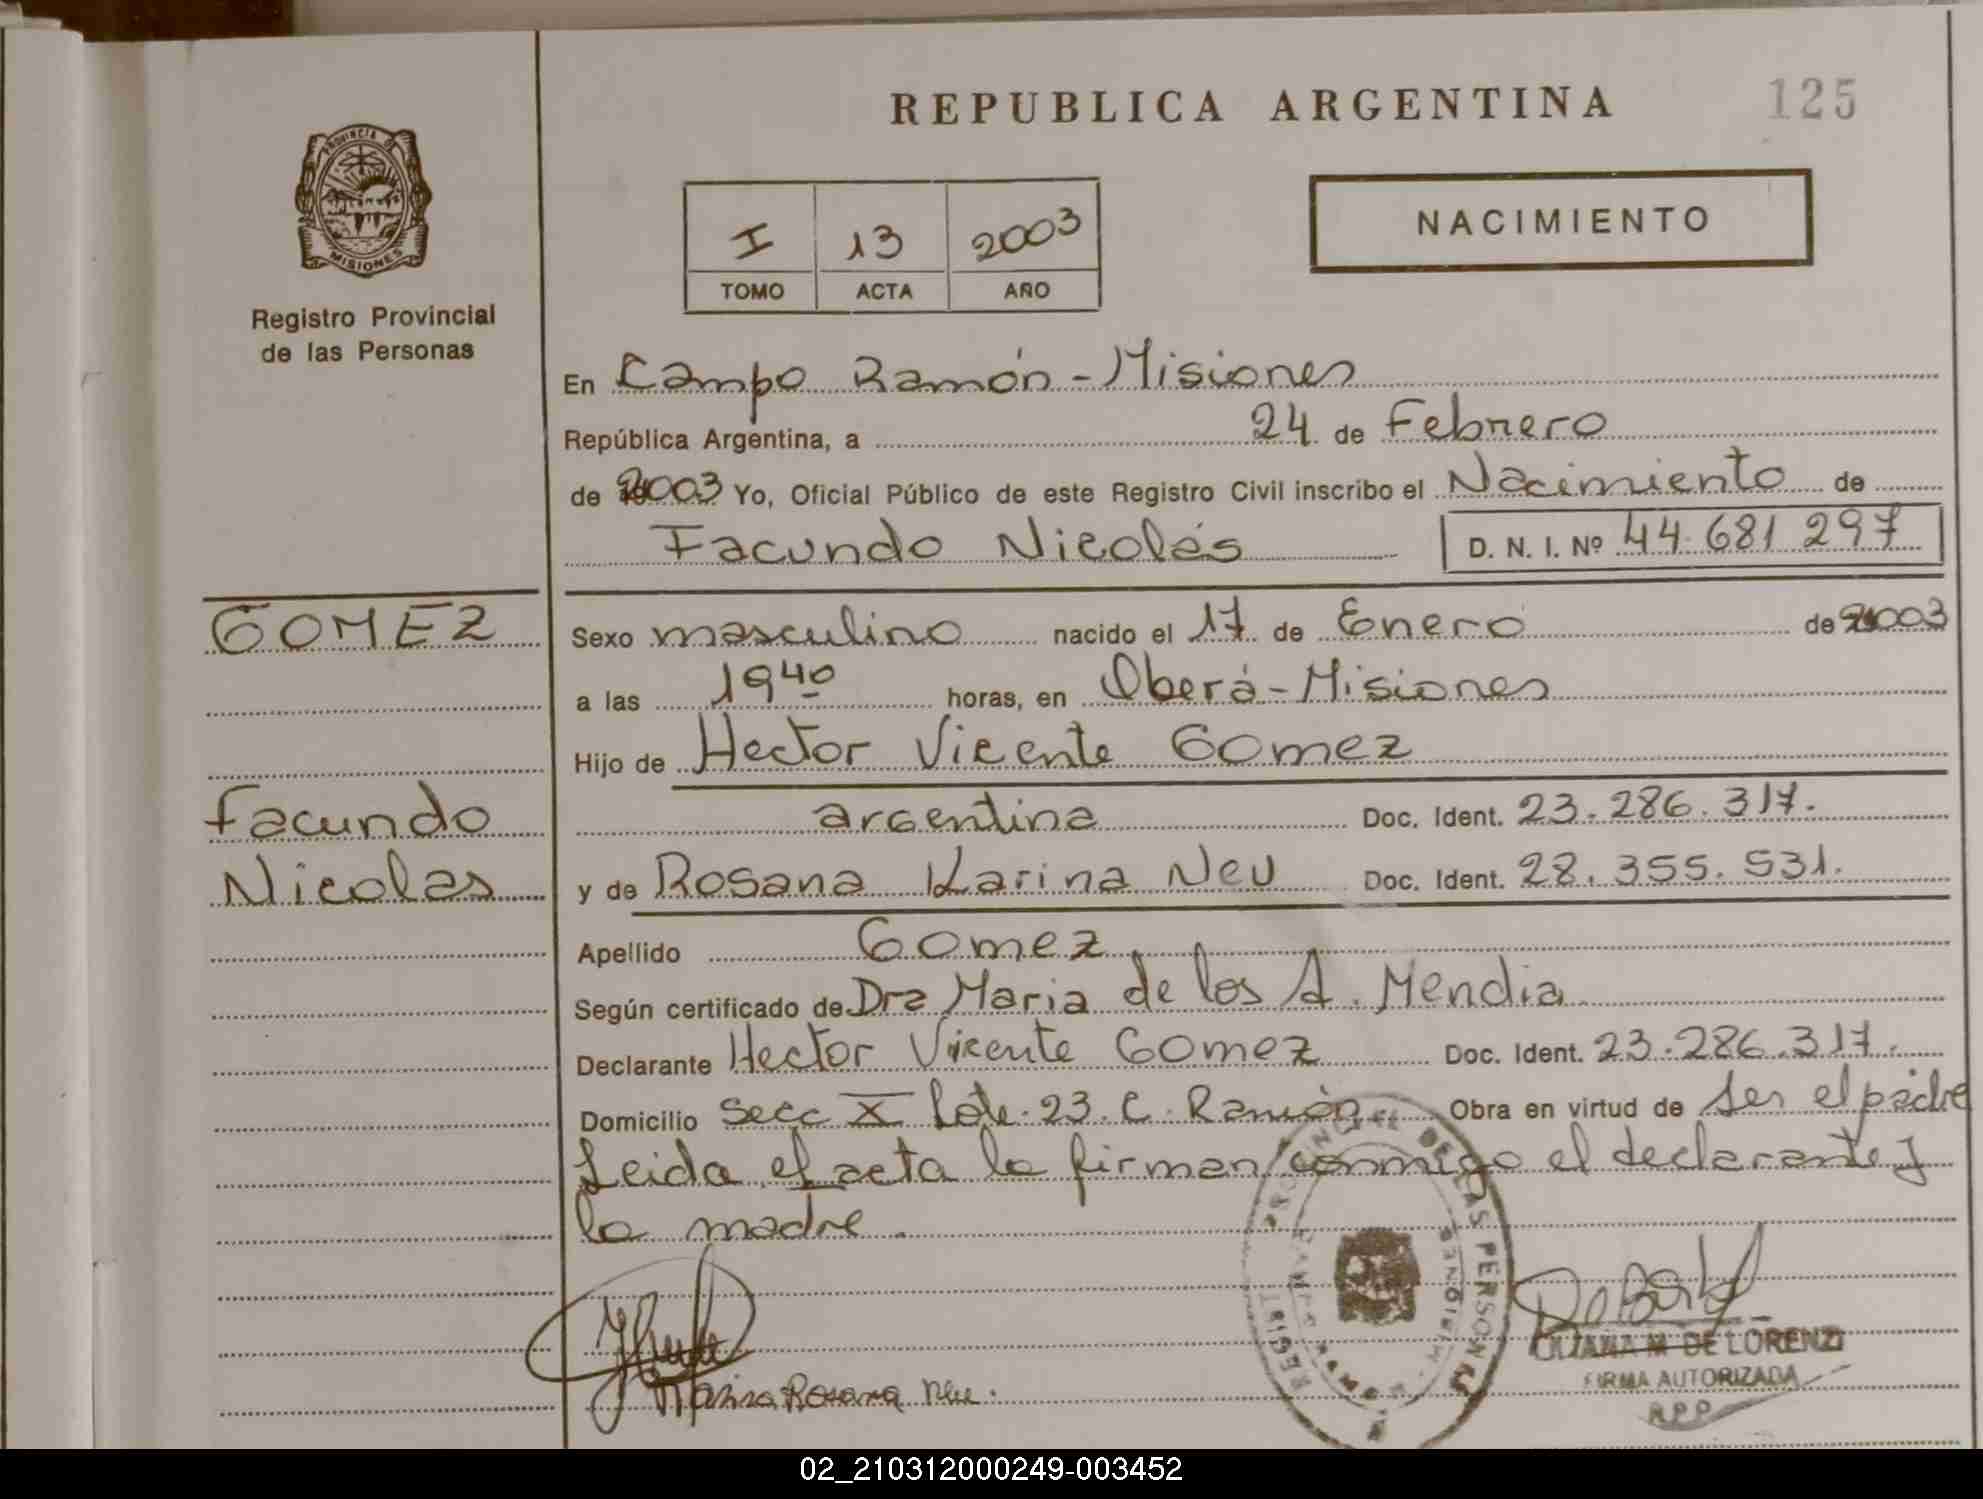 REPUBLICA ARGENTINA
125
PROVINCIA DE
MISIONES
Registro Provincial
de las Personas
I 13 2003
TOMO ACTA AÑO
NACIMIENTO
En Campo Ramón - Misiones
República Argentina, a 24 de Febrero
de 2003 Yo, Oficial Público de este Registro Civil inscribo el Nacimiento de
Facundo Nicolás D. N. I. Nº 44.681 297
GOMEZ
Facundo
Nicolas
Sexo masculino nacido el 17 de Enero de 2003
a las 19 40 horas, en Oberá - Misiones
Hijo de Hector Vicente Gomez
argentina Doc. Ident. 23.286.317.
y de Rosana Karina Neu Doc. Ident. 28.355.531.
Apellido Gomez
Según certificado de Dra Maria de los A. Mendia
Declarante Hector Vicente Gomez Doc. Ident. 23.286.317.
Domicilio Secc X Lote 23. C. Ramón Obra en virtud de ser el padre
Leida el acta la firman conmigo el declarante y
la madre.
DE LAS PERSONAS
MISIONES
LILIANA M DE LORENZI
FIRMA AUTORIZADA
R.P.P.
02_210312000249-003452